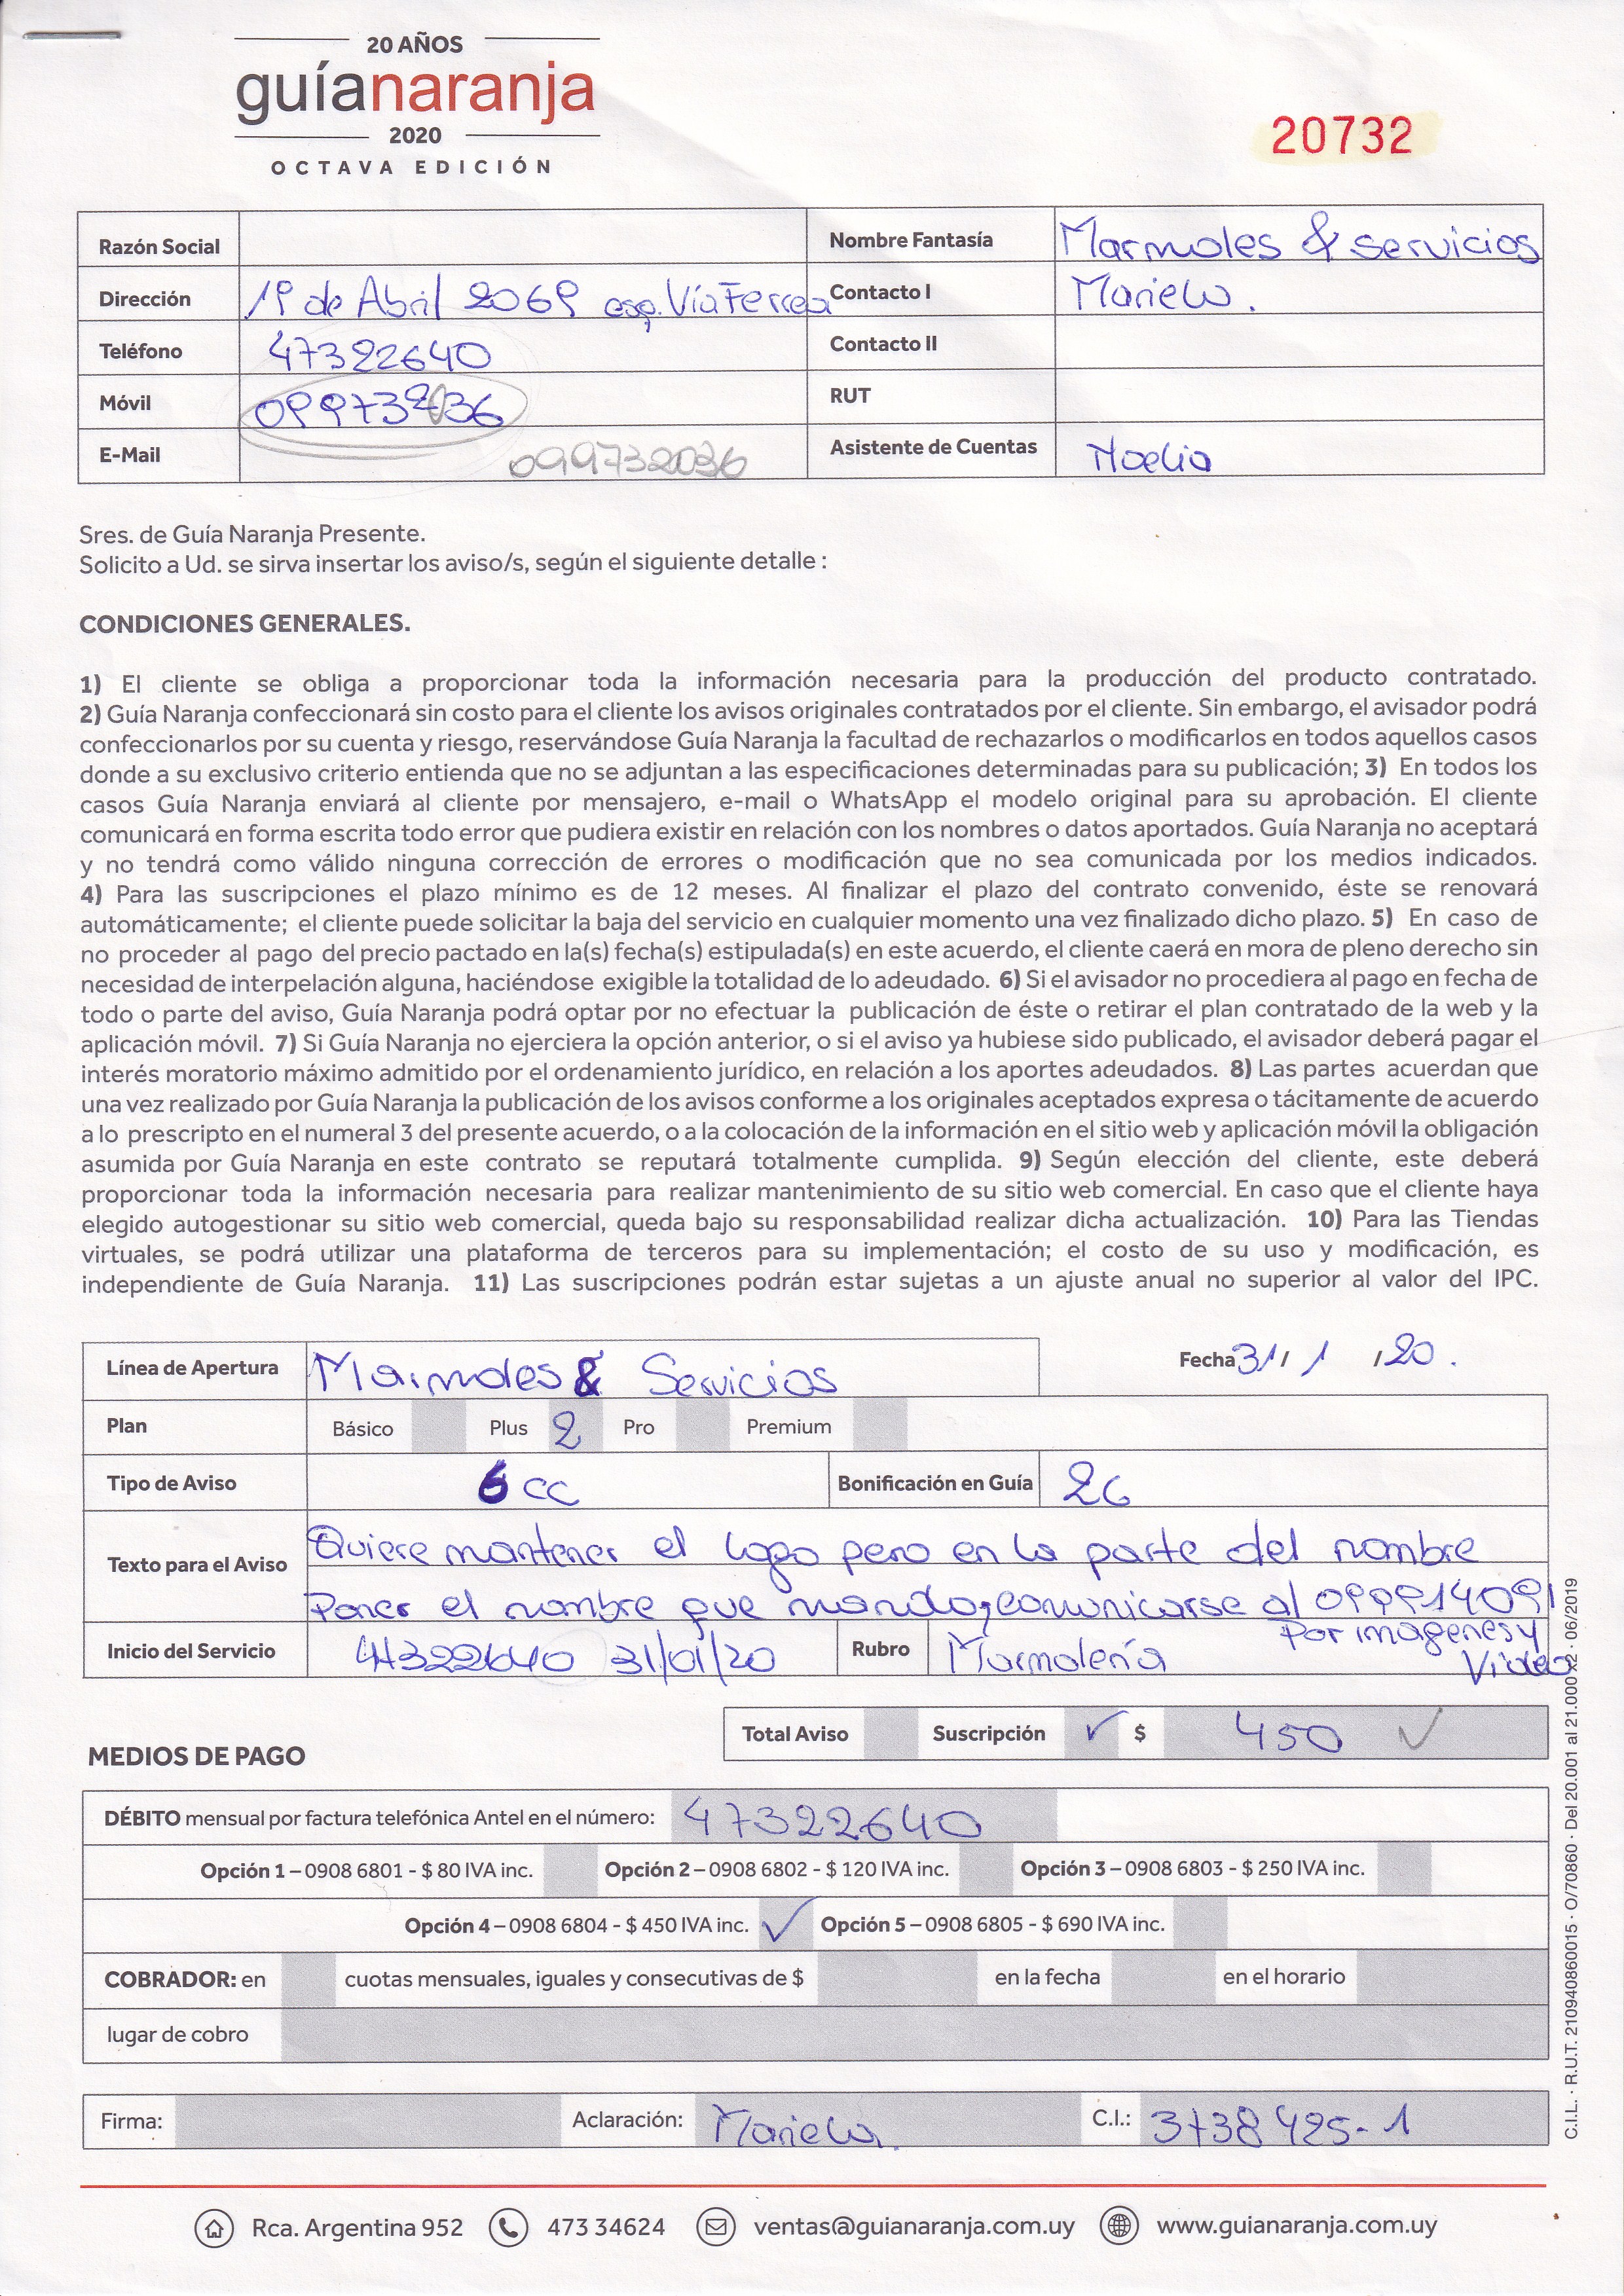 20 AÑOS
guíanaranja
2020
OCTAVA EDICIÓN
20732
Razón Social
Nombre Fantasía Marmoles & servicios
Dirección 1º de Abril 2069 esq. Vía Ferrea
Contacto I Mariela.
Teléfono 47322640
Contacto II
Móvil
RUT
E-Mail 099732036
Asistente de Cuentas Noelia
Sres. de Guía Naranja Presente.
Solicito a Ud. se sirva insertar los aviso/s, según el siguiente detalle :
CONDICIONES GENERALES.
1) El cliente se obliga a proporcionar toda la información necesaria para la producción del producto contratado.
2) Guía Naranja confeccionará sin costo para el cliente los avisos originales contratados por el cliente. Sin embargo, el avisador podrá
confeccionarlos por su cuenta y riesgo, reservándose Guía Naranja la facultad de rechazarlos o modificarlos en todos aquellos casos
donde a su exclusivo criterio entienda que no se adjuntan a las especificaciones determinadas para su publicación; 3) En todos los
casos Guía Naranja enviará al cliente por mensajero, e-mail o WhatsApp el modelo original para su aprobación. El cliente
comunicará en forma escrita todo error que pudiera existir en relación con los nombres o datos aportados. Guía Naranja no aceptará
y no tendrá como válido ninguna corrección de errores o modificación que no sea comunicada por los medios indicados.
4) Para las suscripciones el plazo mínimo es de 12 meses. Al finalizar el plazo del contrato convenido, éste se renovará
automáticamente; el cliente puede solicitar la baja del servicio en cualquier momento una vez finalizado dicho plazo. 5) En caso de
no proceder al pago del precio pactado en la(s) fecha(s) estipulada(s) en este acuerdo, el cliente caerá en mora de pleno derecho sin
necesidad de interpelación alguna, haciéndose exigible la totalidad de lo adeudado. 6) Si el avisador no procediera al pago en fecha de
todo o parte del aviso, Guía Naranja podrá optar por no efectuar la publicación de éste o retirar el plan contratado de la web y la
aplicación móvil. 7) Si Guía Naranja no ejerciera la opción anterior, o si el aviso ya hubiese sido publicado, el avisador deberá pagar el
interés moratorio máximo admitido por el ordenamiento jurídico, en relación a los aportes adeudados. 8) Las partes acuerdan que
una vez realizado por Guía Naranja la publicación de los avisos conforme a los originales aceptados expresa o tácitamente de acuerdo
a lo prescripto en el numeral 3 del presente acuerdo, o a la colocación de la información en el sitio web y aplicación móvil la obligación
asumida por Guía Naranja en este contrato se reputará totalmente cumplida. 9) Según elección del cliente, este deberá
proporcionar toda la información necesaria para realizar mantenimiento de su sitio web comercial. En caso que el cliente haya
elegido autogestionar su sitio web comercial, queda bajo su responsabilidad realizar dicha actualización. 10) Para las Tiendas
virtuales, se podrá utilizar una plataforma de terceros para su implementación; el costo de su uso y modificación, es
independiente de Guía Naranja. 11) Las suscripciones podrán estar sujetas a un ajuste anual no superior al valor del IPC.
Línea de Apertura Marmoles & Servicios
Fecha 31/ 1 /20.
Plan Básico Plus 2 Pro Premium
Tipo de Aviso 6 cc Bonificación en Guía 2c
Texto para el Aviso Quiere mantener el logo pero en la parte del nombre
Poner el nombre que mando, comunicarse al 099914091
Por imagenes y
Video
Inicio del Servicio 47322640 31/01/20 Rubro Marmolería
Total Aviso Suscripción ✓ $ 450 ✓
MEDIOS DE PAGO
DÉBITO mensual por factura telefónica Antel en el número: 47322640
Opción 1 – 0908 6801 - $ 80 IVA inc. Opción 2 – 0908 6802 - $ 120 IVA inc. Opción 3 – 0908 6803 - $ 250 IVA inc.
Opción 4 – 0908 6804 - $ 450 IVA inc. ✓ Opción 5 – 0908 6805 - $ 690 IVA inc.
COBRADOR: en cuotas mensuales, iguales y consecutivas de $ en la fecha en el horario
lugar de cobro
Firma: Aclaración: Mariela. C.I.: 3738425-1
Rca. Argentina 952 473 34624 ventas@guianaranja.com.uy www.guianaranja.com.uy
C.I.L. · R.U.T. 210940860015 · O/70860 · Del 20.001 al 21.000 x2 · 06/2019